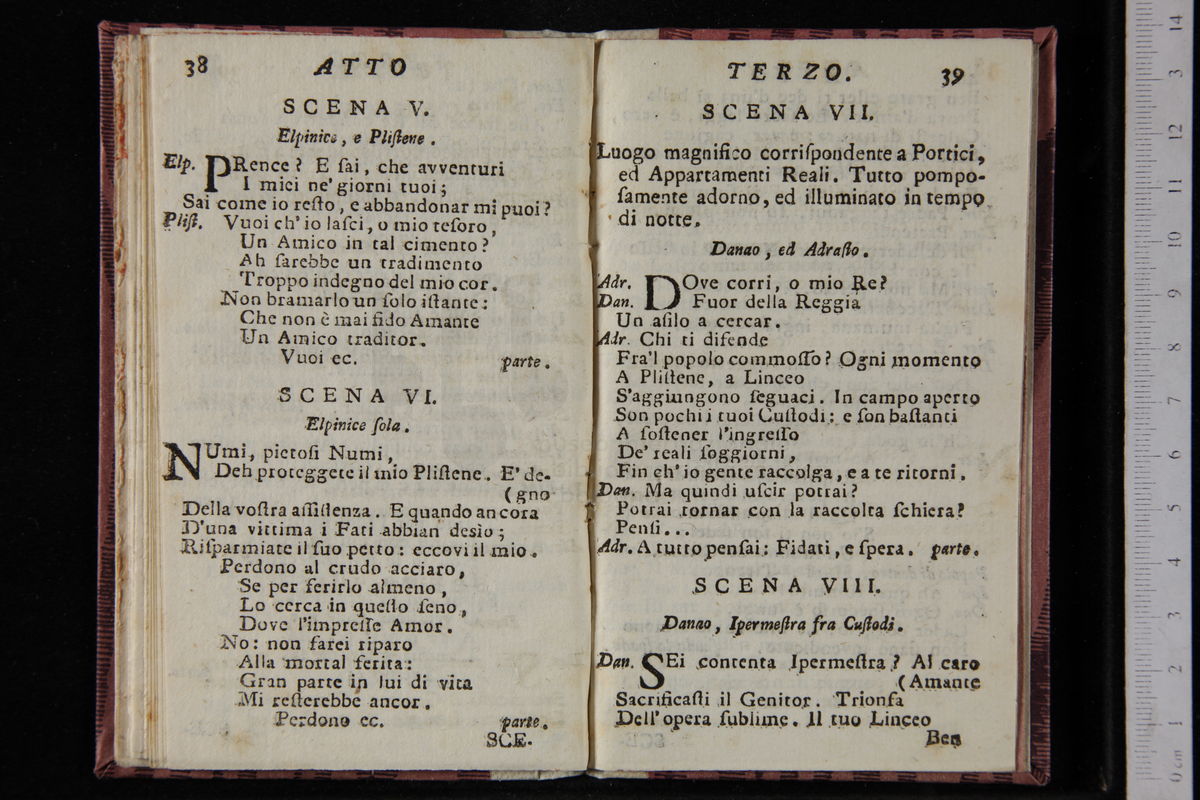 38 ATTO
SCENA V.
Elpinice, e Pliſtene.
Elp. PRence? E ſai, che avventuri
I miei ne' giorni tuoi;
Sai come io reſto, e abbandonar mi puoi?
Pliſt. Vuoi ch' io laſci, o mio teſoro,
Un Amico in tal cimento?
Ah ſarebbe un tradimento
Troppo indegno del mio cor.
Non bramarlo un ſolo iſtante:
Che non è mai fido Amante
Un Amico traditor.
Vuoi ec. parte.
SCENA VI.
Elpinice ſola.
NUmi, pietoſi Numi,
Deh proteggete il mio Pliſtene. E' de-
(gno
Della voſtra aſſiſtenza. E quando ancora
D'una vittima i Fati abbian desìo;
Riſparmiate il ſuo petto: eccovi il mio.
Perdono al crudo acciaro,
Se per ferirlo almeno,
Lo cerca in queſto ſeno,
Dove l'impreſſe Amor.
No: non farei riparo
Alla mortal ferita:
Gran parte in lui di vita
Mi reſterebbe ancor.
Perdono ec. parte.
SCE-
TERZO. 39
SCENA VII.
Luogo magnifico corriſpondente a Portici,
ed Appartamenti Reali. Tutto pompo-
ſamente adorno, ed illuminato in tempo
di notte.
Danao, ed Adraſto.
Adr. DOve corri, o mio Re?
Dan. Fuor della Reggia
Un aſilo a cercar.
Adr. Chi ti difende
Fra'l popolo commoſſo? Ogni momento
A Pliſtene, a Linceo
S'aggiungono ſeguaci. In campo aperto
Son pochi i tuoi Cuſtodi: e ſon baſtanti
A ſoſtener l'ingreſſo
De' reali ſoggiorni,
Fin ch' io gente raccolga, e a te ritorni.
Dan. Ma quindi uſcir potrai?
Potrai tornar con la raccolta ſchiera?
Penſi...
Adr. A tutto penſai: Fidati, e ſpera. parte.
SCENA VIII.
Danao, Ipermeſtra fra Cuſtodi.
Dan. SEi contenta Ipermeſtra? Al caro
(Amante
Sacrificaſti il Genitor. Trionfa
Dell' opera ſublime. Il tuo Linceo
Ben
0 cm 1 2 3 4 5 6 7 8 9 10 11 12 3 14